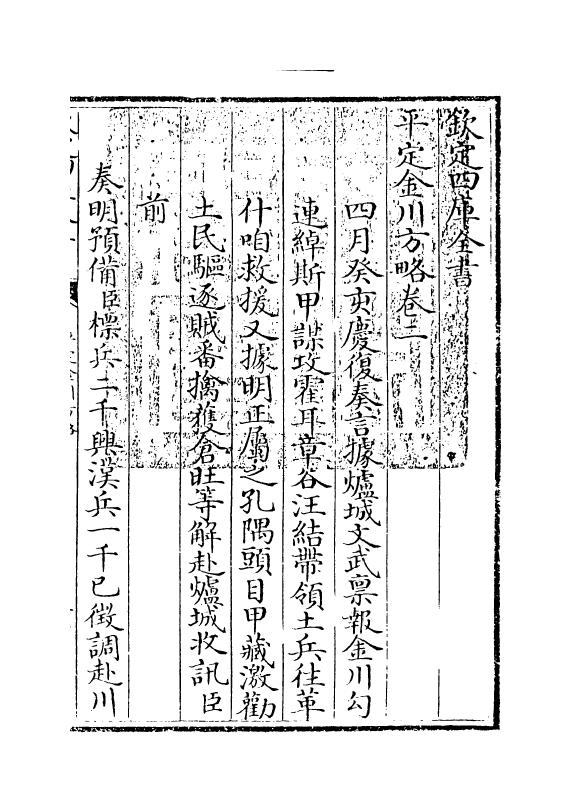 欽定四庫全書
平定金川方略卷二
四月癸亥慶復奏言據爐城文武禀報金川勾
連綽斯甲謀攻霍耳章谷汪結帶領土兵往革
什咱救援又據明正屬之孔隅頭目甲藏激勸
土民驅逐賊番擒獲倉旺等解赴爐城收訊臣
前
奏明預備臣標兵二千興漢兵一千已徴調赴川